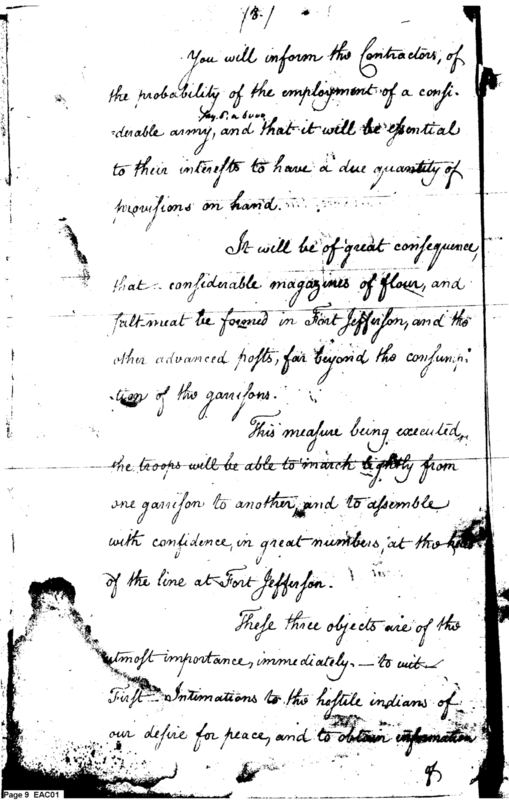 (8.)
You will inform the Contractors, of
the probability of the employment of a consi-
Say 5. or 6000
-derable army, and that it will be essential
to their interests to have a due quantity of
provisions on hand.
It will be of great consequence,
that considerable magazines of flour, and
salt meat be formed in Fort Jefferson, and the
other advanced posts, far beyond the consump-
-tion of the garrisons.
This measure being executed,
the troops will be able to march lightly from
one garrison to another, and to assemble
with confidence, in great numbers, at the head
of the line at Fort Jefferson.
These three objects are of the
utmost importance, immediately. — to wit —
First — Intimations to the hostile indians of
our desire for peace, and to obtain information
of
Page 9 EAC01